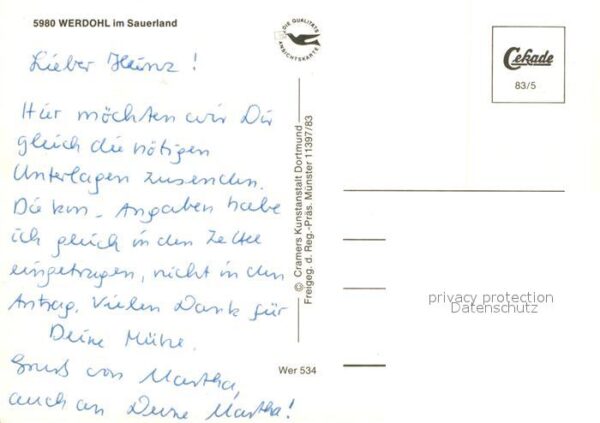 5980 WERDOHL im Sauerland
Lieber Heinz!
Hier möchten wir Dir
gleich die nötigen
Unterlagen zusenden.
Die km - Angaben habe
ich gleich in den Zettel
eingetragen, nicht in den
Antrag. Vielen Dank für
Deine Mühe.
Gruß von Martha,
auch an Deine Martha!
DIE QUALITÄTS
ANSICHTSKARTE
© Cramers Kunstanstalt Dortmund
Freigeg. d. Reg.-Präs. Münster 11397/83
Wer 534
Cekade
83/5
privacy protection
Datenschutz